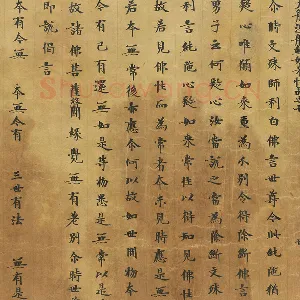 尒時文殊師利白佛言世尊今此純陁猶
疑心唯願如來重為分別令得除斷佛言
男子云何疑心汝當說之當為除斷文殊
利言純陁心疑如來常住以得知見佛性
故若見佛性而為常者本未見時應是無
若本無常後亦應尒何以故如世間物本
今有已有還無如是等物悉是無常以是
故諸佛菩薩聲聞緣覺無有差別尒時世
即說偈言
本有今無 本無今有 三世有法 無有是